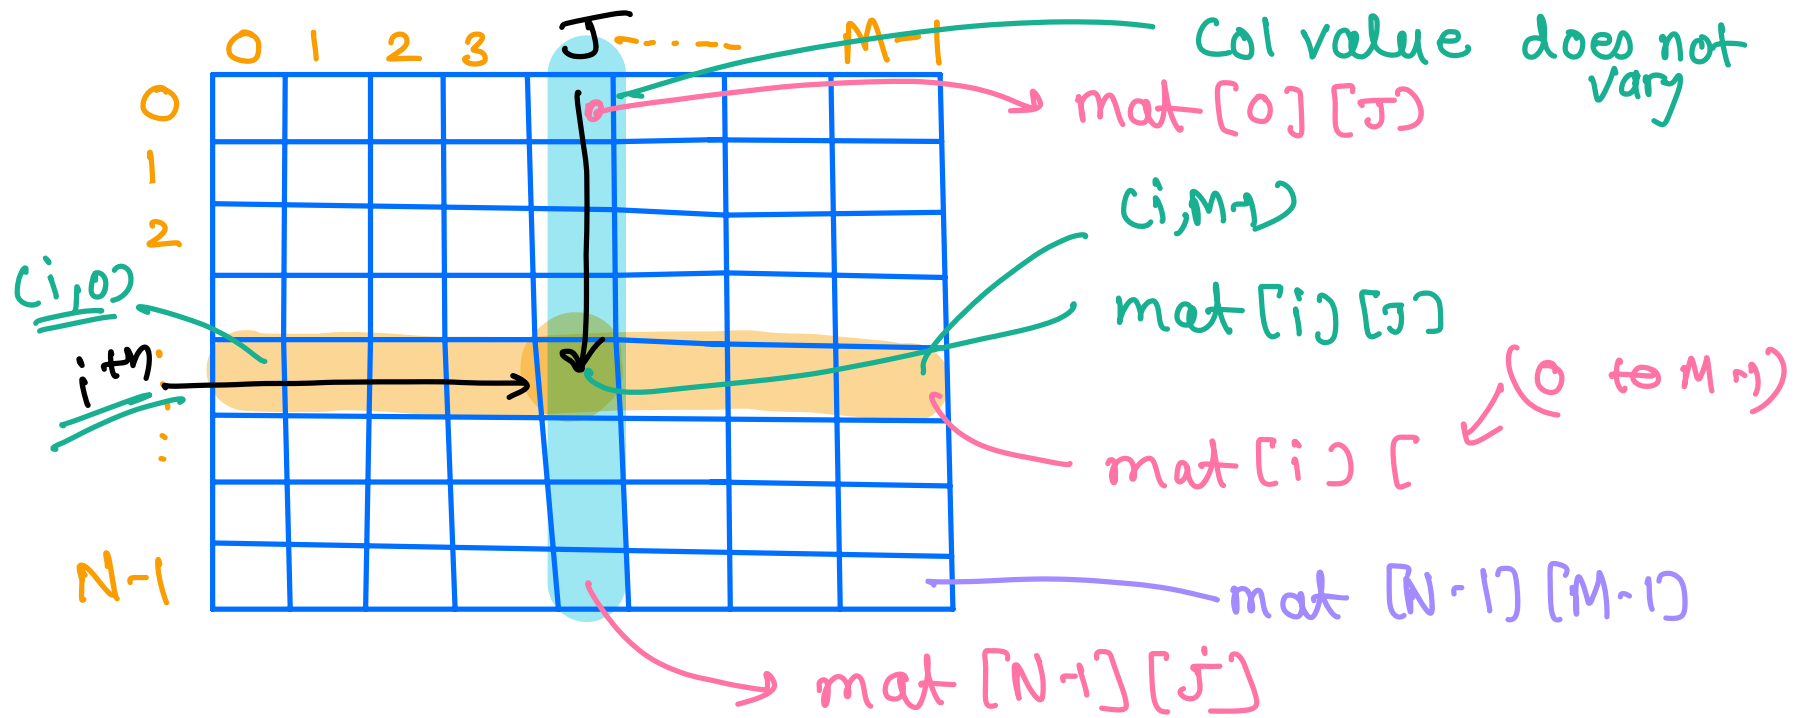 0 1 2 3 J - - - - - M-1
Col value does not
vary
0
mat [0] [J]
1
(i, M-1)
2
(i,0)
mat [i] [J]
ith
(0 to M-1)
mat [i] [
N-1
mat [N-1] [M-1]
mat [N-1] [j]